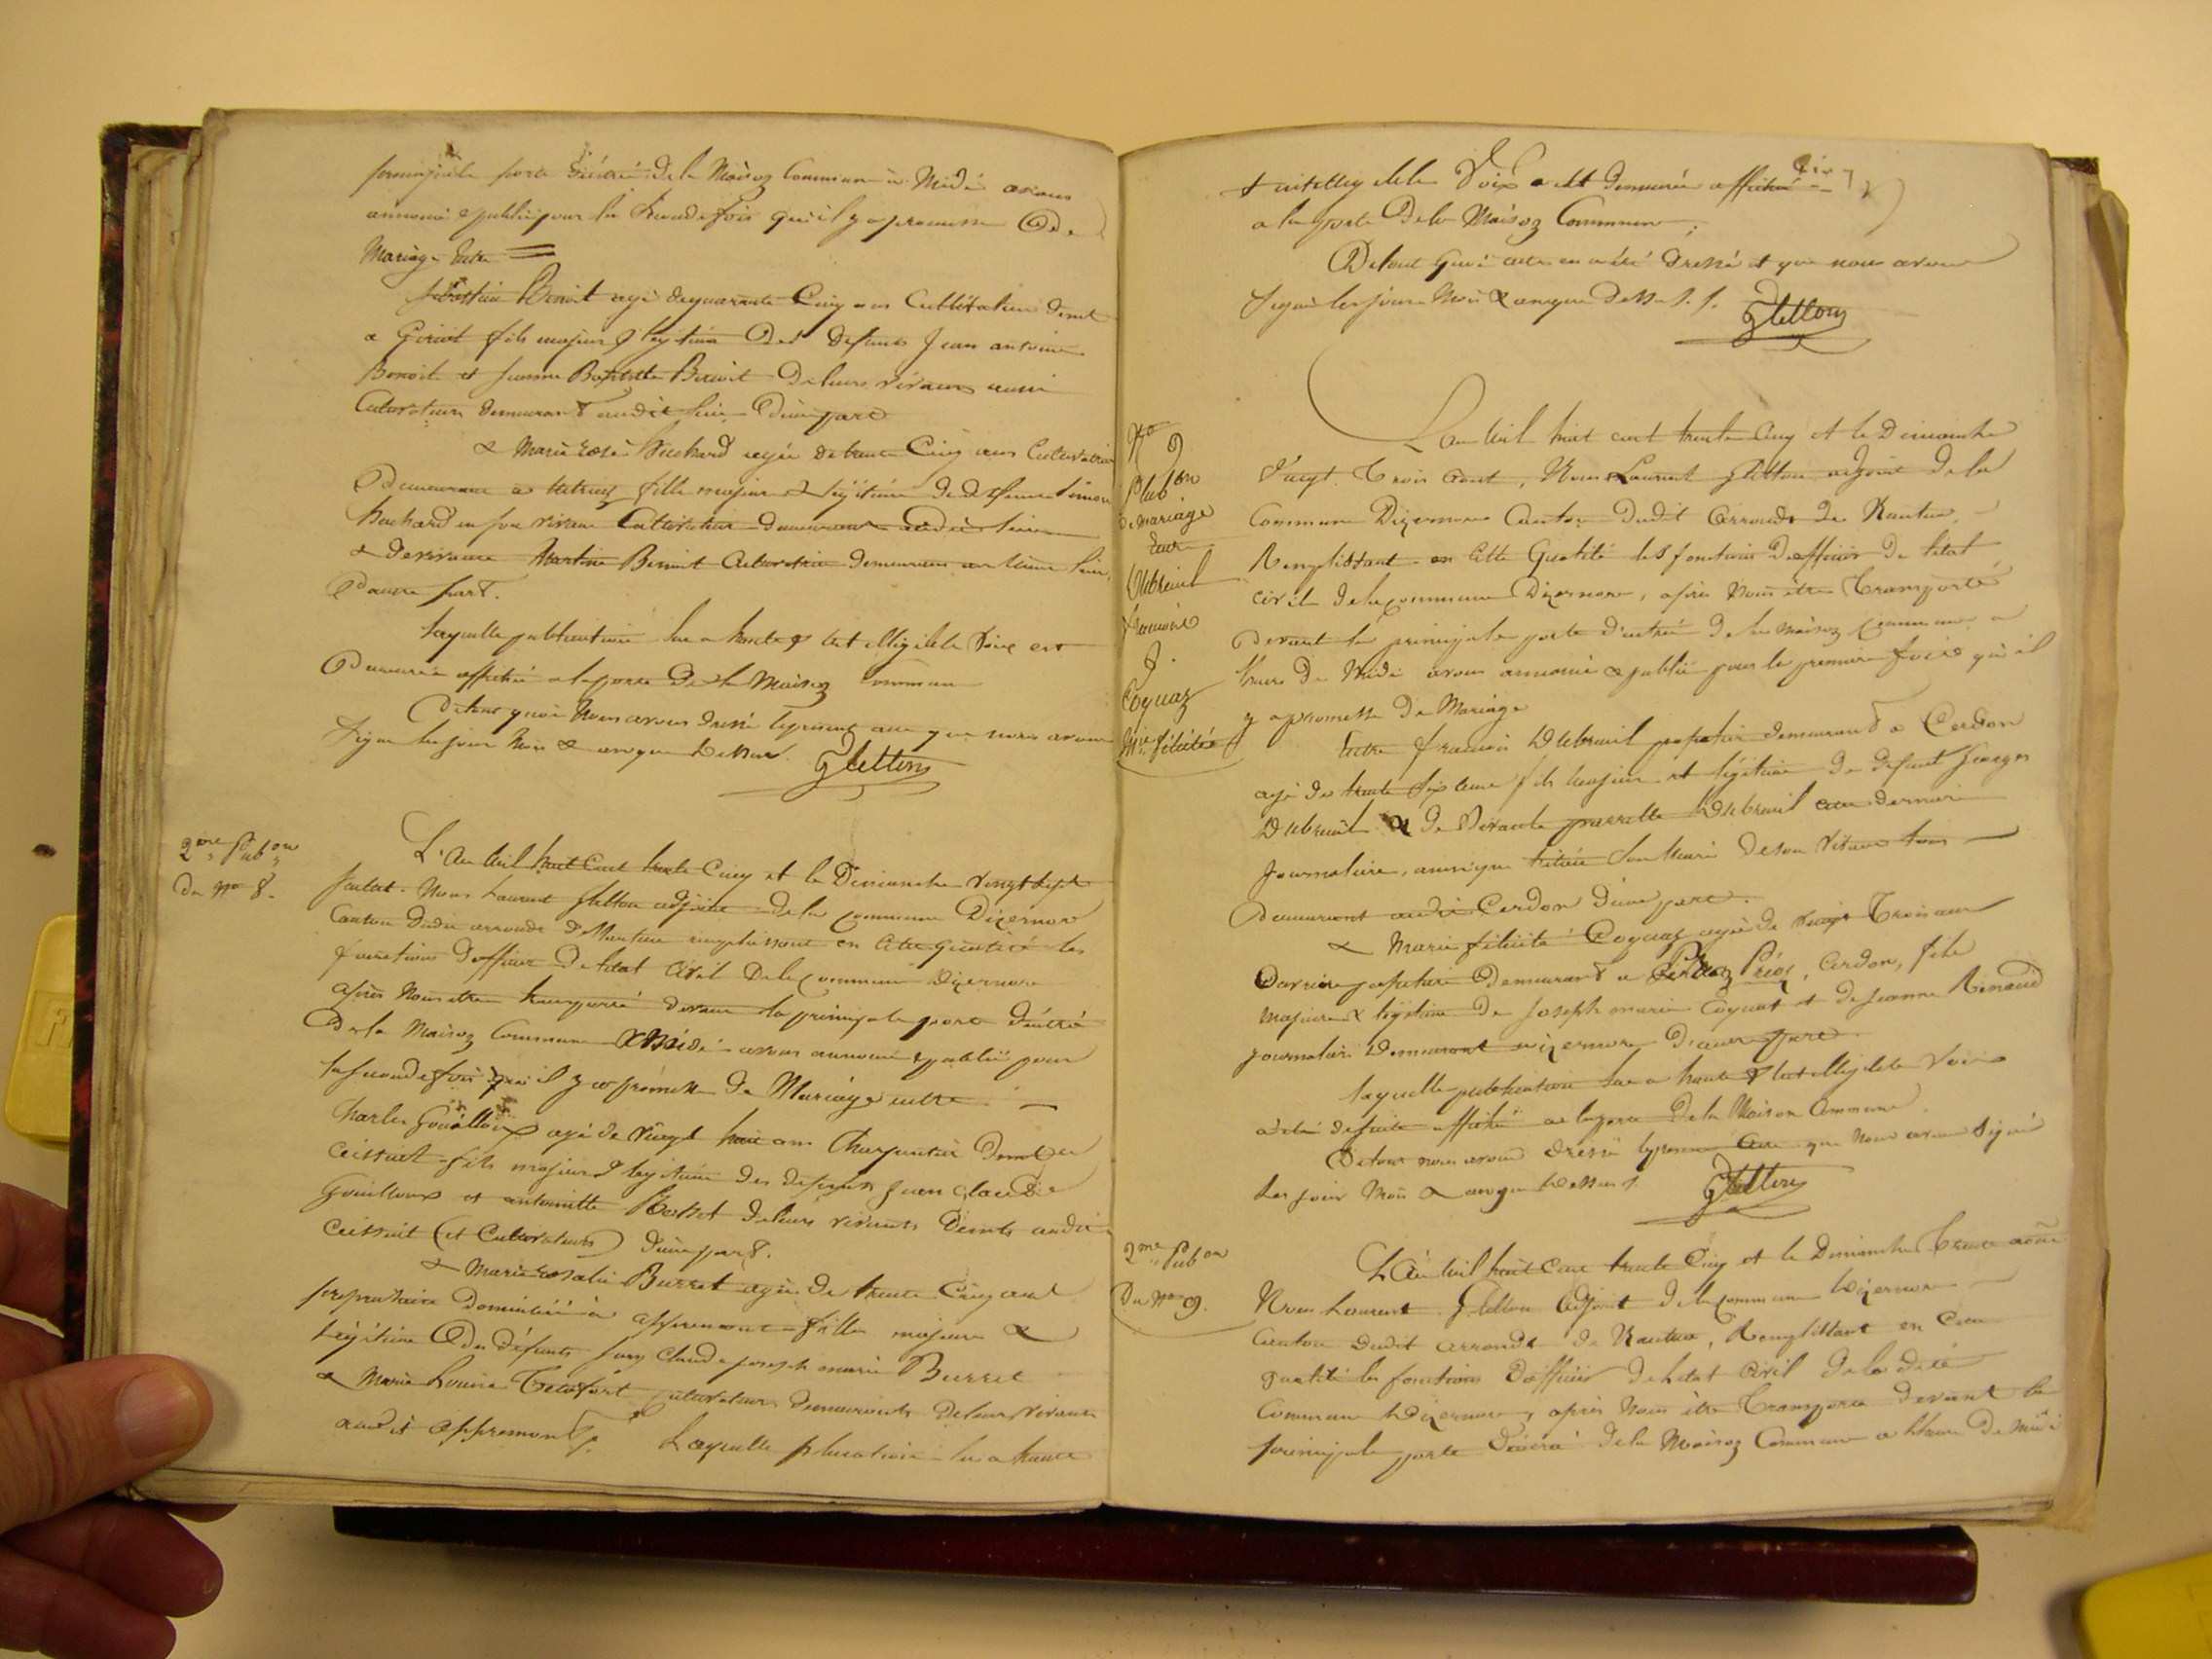 principale porte d'entrée de la Maison Commune à Midi avons
annoncé & publié pour la seconde fois qu'il y a promesse de
Mariage Entre =
Sébastien Benoit agé de quarante Cinq ans Cultivateur demt
a Giriat fils majeur & légitime des défunts Jean antoine
Benoit et Jeanne Baptiste Benoit de leurs vivans aussi
Cultivateurs demeurant audit lieu d'une part
& Marie rose Buchard agée de trente Cinq ans Cultivatrice
Demeurant a fille majeure & légitime de defunt Simon
Buchard en son vivant Cultivateur demeurant audit lieu
& de vivante Martine Benoit Cultivatrice demeurant au même lieu
D'autre part.
laquelle publication lue a haute & intelligible Voix est
Demeurée affichée a la porte de la Maison Commune
De tout quoi Nous avons dressé le présent acte que nous avons
Signé les jour Mois & an que dessus. Gletton
2me Pubon
Du No 8.
L'an Mil huit Cent trente Cinq et le Dimanche vingt Sept
. Nous Laurent Gletton adjoint de la Commune Dizernore
Canton dudit arrondt de Nantua remplissant en Cette qualité les
fonctions d'officier de l'état Civil de la Commune Dizernore
après Nous être transporté devant la principale porte d'entrée
De la Maison Commune a Midi avons annoncé & publié pour
la seconde fois qu'il y a promesse de Mariage entre
Charles Gouilloux agé de Vingt huit ans Charpentier Demt a
Ceissiat fils majeur & légitime des defunts Jean Claude
Gouilloux et antoinette Bosset de leurs vivants Demts audit
Ceissiat (et Cultivateurs) d'une part.
& Marie rosalie Burret agée de trente Cinq ans
propriétaire Domiciliée à appremont fille majeure &
légitime Des Défunts Jean Claude joseph marie Burret
& Marie Louise Cultivateurs demeurants de leurs vivants
audit appremont. Laquelle lue a haute
& intellig ible Voix a été demeurée affichée
a la porte De la Maison Commune ;
De tout quoi acte en a été Dressé et que nous avons
Signé les jour Mois & an que Dessus. Gletton
No
9
Pubon
de mariage
Entre
Dubreuil
francois
&
Coquaz
Mie félicité
L'an Mil huit cent trente Cinq et le Dimanche
Vingt Trois aout, Nous Laurent Gletton adjoint de la
Commune Dizernore Canton Dudit arrondt de Nantua
Remplissant en Cette Qualité les fonctions D'officier De l'état
civil de la Commune Dizernore, après Nous être Transporté
Devant la principale porte d'entrée de la Maison Commune a
l'heure De Midi avons annoncé & publié pour la premiere fois qu'il
y a promesse De Mariage
Entre francois Dubreuil demeurant a Cerdon
agé de trente Six ans fils Majeur et légitime de defunt
Dubreuil & De Vivante Dubreuil cette derniere
Journaliere, ainsi que son Mari de son Vivant tous
Demeurant audit Cerdon D'une part.
& Marie félicité Coquaz agée de Vingt Trois ans
demeurant a , Cerdon, fille
Majeure & légitime De Joseph marie Coquaz et de Jeanne Renaud
Journaliers Demeurant a izernore D'autre part.
laquelle publication lue a haute & intelligible Voix
a été de suite affichée a la porte De la Maison Commune
De tout nous avons dressé le present acte que Nous avons Signé
Les jour Mois & an que Dessus. Gletton
2me Pubon
Du No 9.
L'An Mil huit Cent trente Cinq et le Dimanche Trente aout
Nous Laurent Gletton adjoint de la Commune Dizernore
Canton Dudit arrondt de Nantua, Remplissant en Cette
qualité les fonctions D'officier De l'état Civil de la dite
Commune Dizernore, après Nous être Transporté Devant la
principale porte d'entrée de la Maison Commune a l'heure De Midi